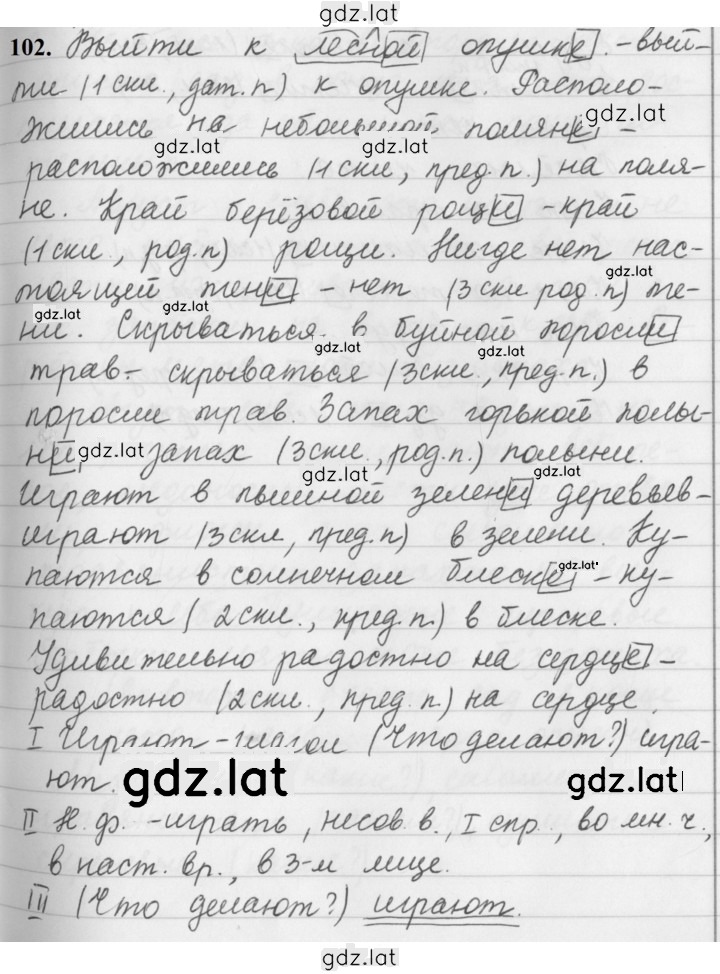 gdz.lat
102. Выйти к лесной опушке - вый-
ти (1 скл., дат. п.) к опушке. Располо-
gdz.lat
жились на небольшой поляне -
gdz.lat gdz.lat
расположились (1 скл., пред. п.) на поля-
не. Край берёзовой рощи - край
(1 скл., род. п.) рощи. Нигде нет нас-
gdz.lat
тоящей тени - нет (3 скл. род. п.) те-
gdz.lat gdz.lat
ни. Скрываться в буйной поросли
gdz.lat gdz.lat
трав - скрываться (3 скл., пред. п.) в
поросли трав. Запах горькой полы-
ни, gdz.lat запах (3 скл., род. п.) полыни.
gdz.lat gdz.lat
Играют в пышной зелени деревьев -
играют (3 скл, пред. п) в зелени. Ку-
паются в солнечном блеске - ку-
gdz.lat
паются (2 скл., пред. п.) в блеске.
Удивительно радостно на сердце -
радостно (2 скл., пред. п.) на сердце.
I Играют - глагол (Что делают?) игра-
ют.
gdz.lat gdz.lat
II Н. ф. - играть, несов в., I спр., во мн. ч.,
в наст. вр., в 3-м лице.
III (Что делают?) играют.
gdz.lat